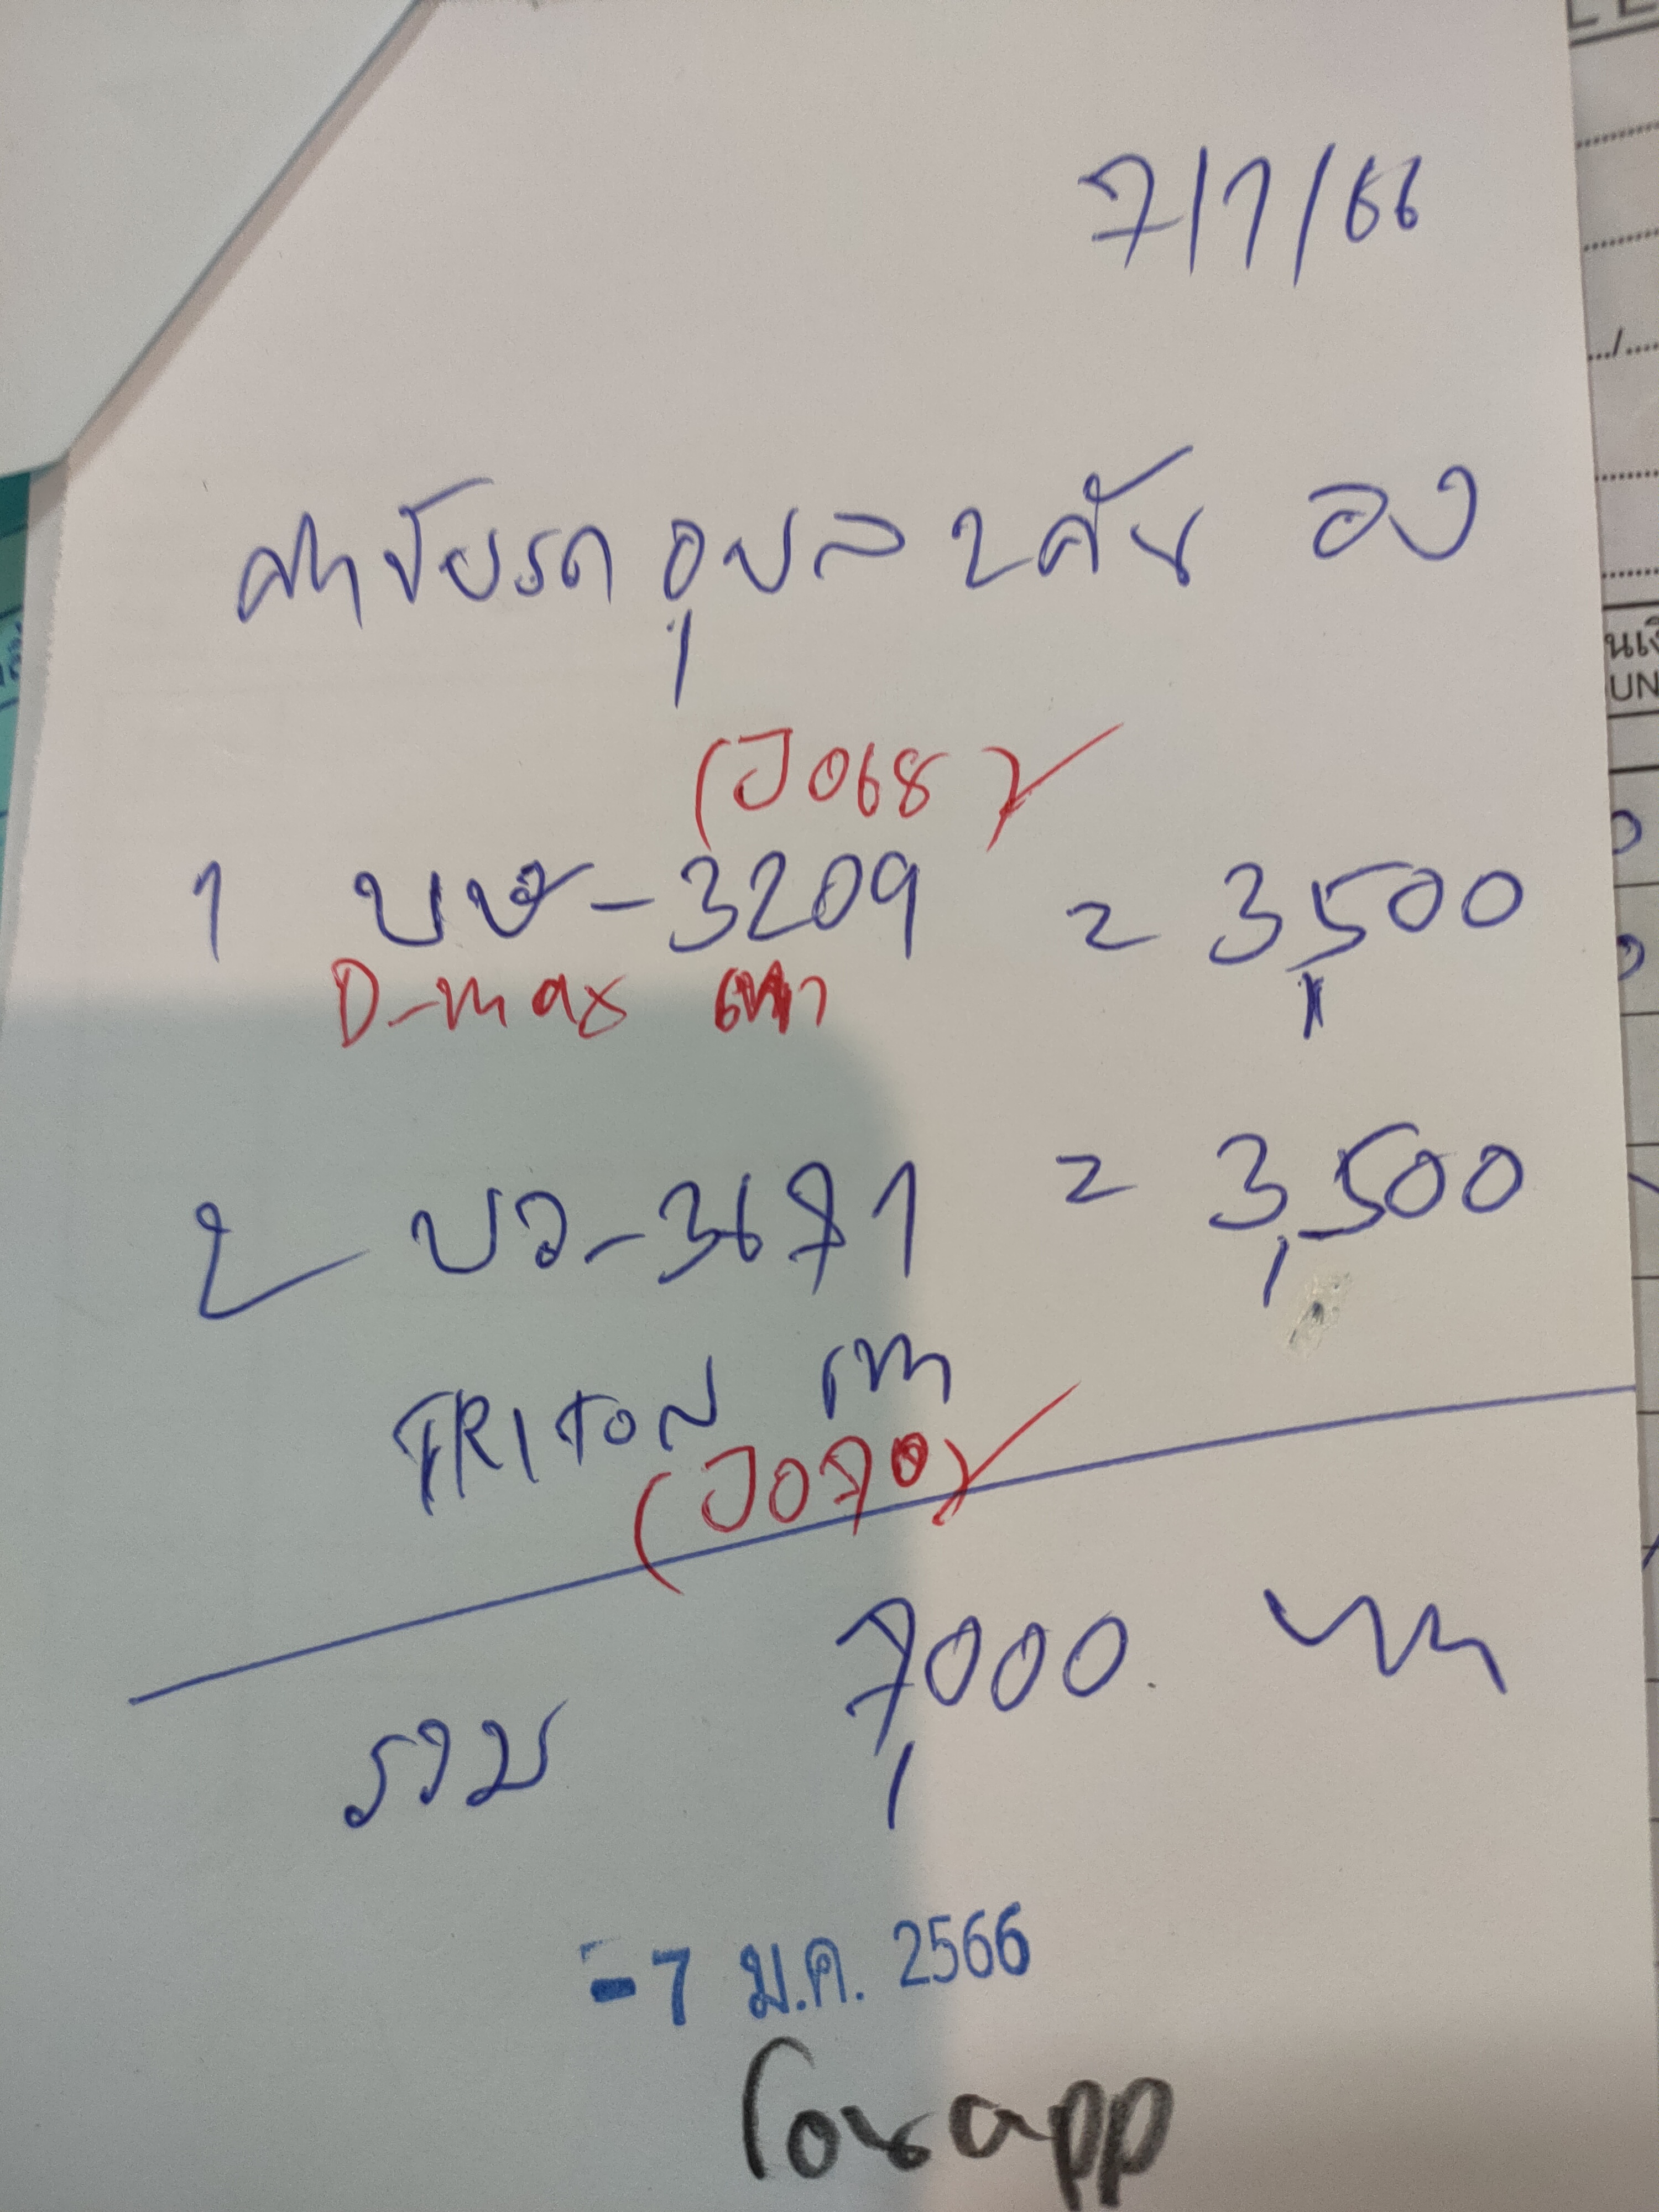 7/1/66
ค่าขับรถ อุบล 2 คัน อง
(J068)
1 บษ-3209 = 3,500
D-max เทา
2 บว-3671 = 3,500
TRITON เทา
(J070)
รวม 7,000. บาท
-7 ม.ค. 2566
โอนapp
นเงิ
UN